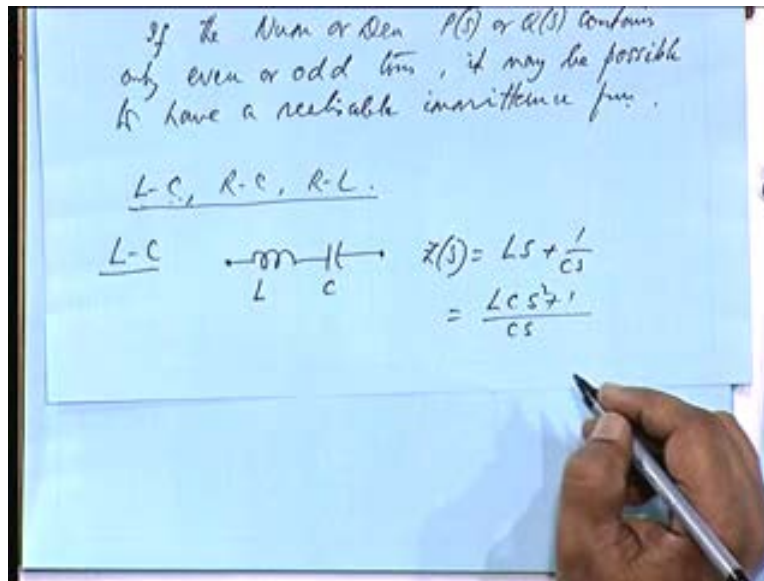 If the Num or Den P(s) or Q(s) contains
only even or odd tms, it may be possible
to have a realisable immittance fun.
L-C, R-C, R-L.
L-C L C Z(s) = LS + 1/CS
= LCS²+1/CS